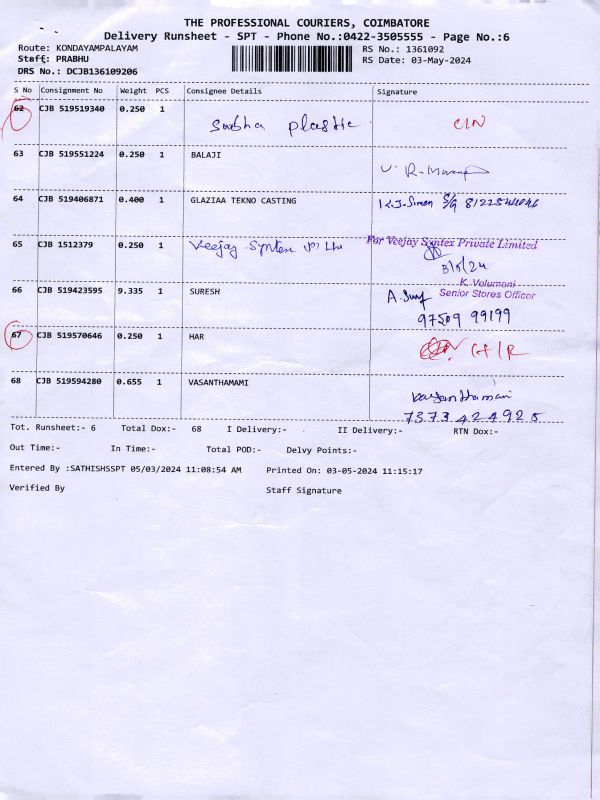 THE PROFESSIONAL COURIERS, COIMBATORE
Delivery Runsheet - SPT - Phone No.:0422-3505555 - Page No.:6
Route: KONDAYAMPALAYAM RS No.: 1361092
Staff: PRABHU RS Date: 03-May-2024
DRS No.: DCJB136109206
S No Consignment No Weight PCS Consignee Details Signature
62 CJB 519519340 0.250 1 Subha plastic C/N
63 CJB 519551224 0.250 1 BALAJI
64 CJB 519406871 0.400 1 GLAZIAA TEKNO CASTING
65 CJB 1512379 0.250 1 Veejay Syntex For Veejay Syntex Private Limited
3/5/24
K. Velumani
Senior Stores Officer
66 CJB 519423595 9.335 1 SURESH
97509 99199
67 CJB 519570646 0.250 1 HAR
68 CJB 519594280 0.655 1 VASANTHAMAMI
7373424925
Tot. Runsheet:- 6 Total Dox:- 68 I Delivery:- II Delivery:- RTN Dox:-
Out Time:- In Time:- Total POD:- Delvy Points:-
Entered By :SATHISHSSPT 05/03/2024 11:08:54 AM Printed On: 03-05-2024 11:15:17
Verified By Staff Signature